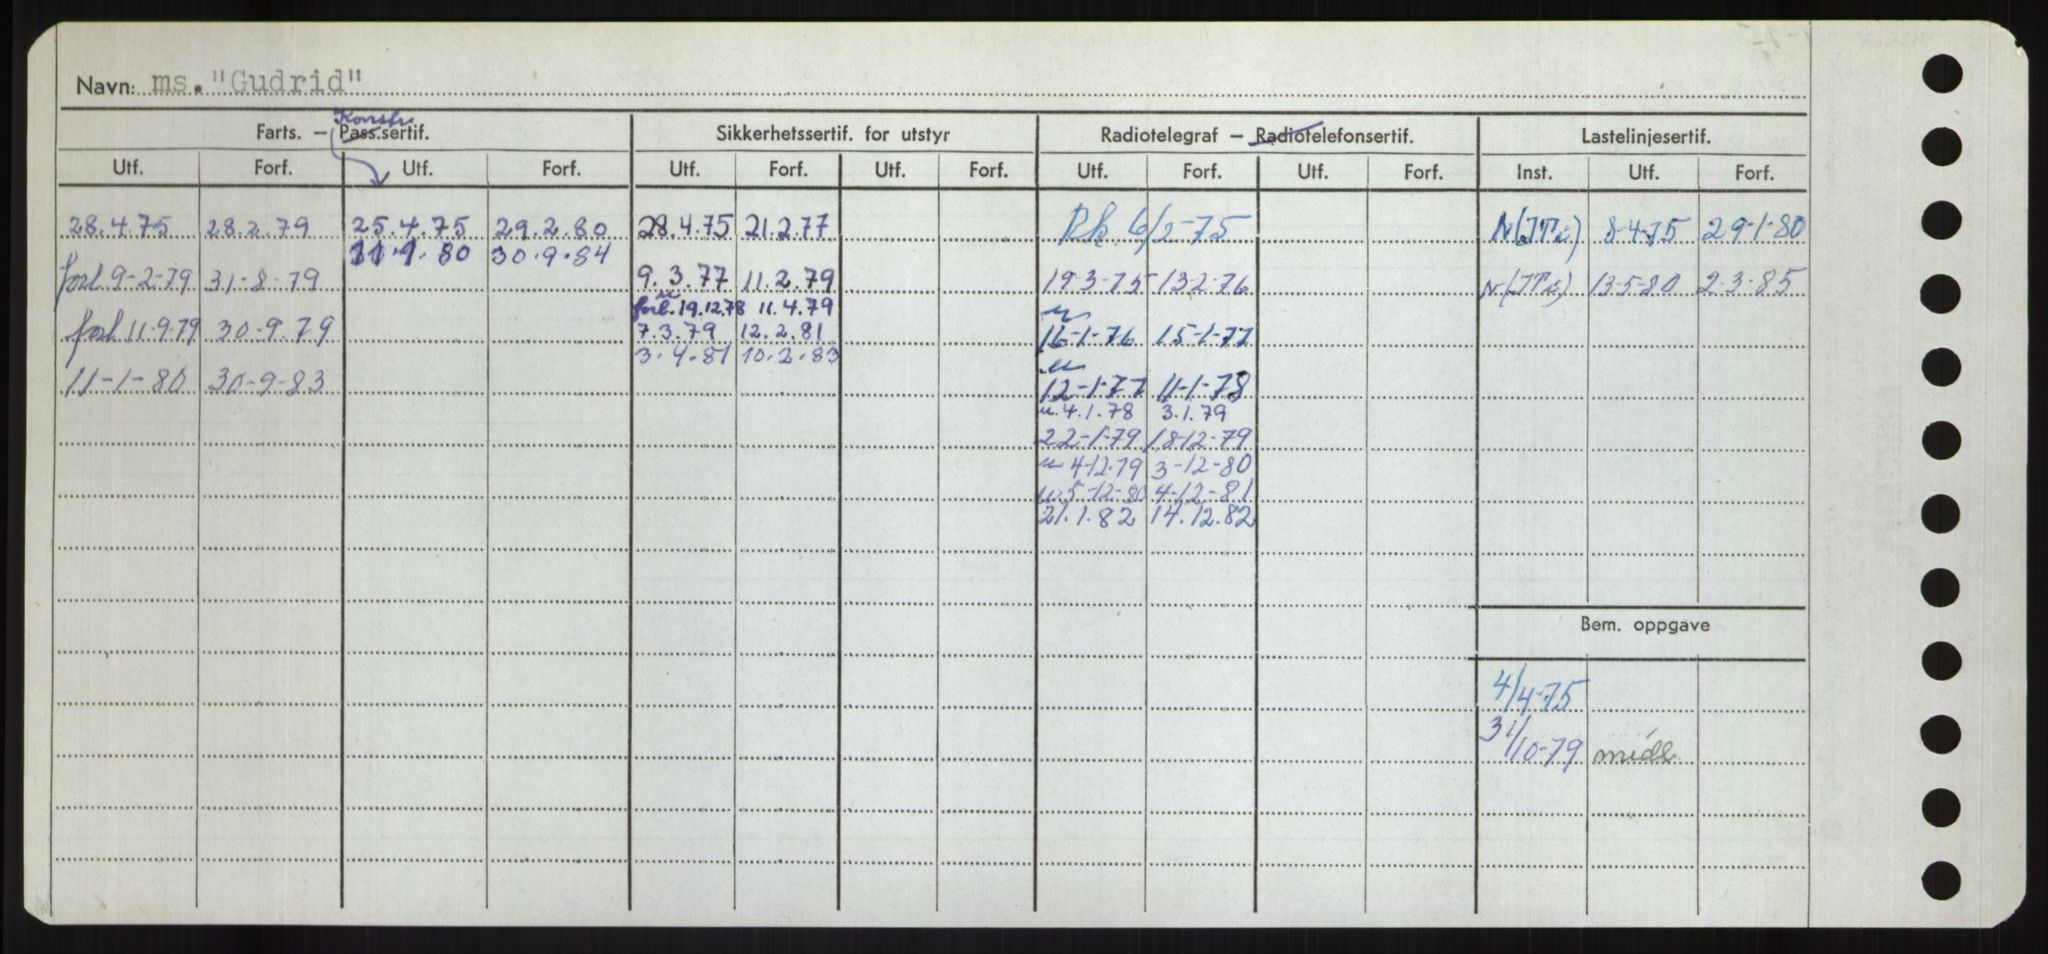 Navn: ms. "Gudrid"
Konstr.
Farts. – Pass.sertif. Sikkerhetssertif. for utstyr Radiotelegraf – Radiotelefonsertif. Lastelinjesertif.
Utf. Forf. Utf. Forf. Utf. Forf. Utf. Forf. Utf. Forf. Utf. Forf. Inst. Utf. Forf.
28.4.75 28.2.79 25.4.75 29.2.80 28.4.75 21.2.77 6/2-75 8-4-75 29-1-80
11.1.80 30.9.84
forl 9-2-79 31-8-79 9.3.77 11.2.79 19-3-75 13-2-76 13-5-80 2-3-85
forl. 19.12.78 11.4.79
forl 11-9-79 30-9.79 7.3.79 12.2.81 16-1-76 15-1-77
3.4.81 10.2.83
11-1-80 30-9-83 12-1-77 11-1-78
u. 4.1.78 3.1.79
22-1-79 18-12-79
u 4-12-79 3-12-80
u. 5-12-80 4-12-81
21.1.82 14.12.82
Bem. oppgave
4/4-75
31/10-79 midl.